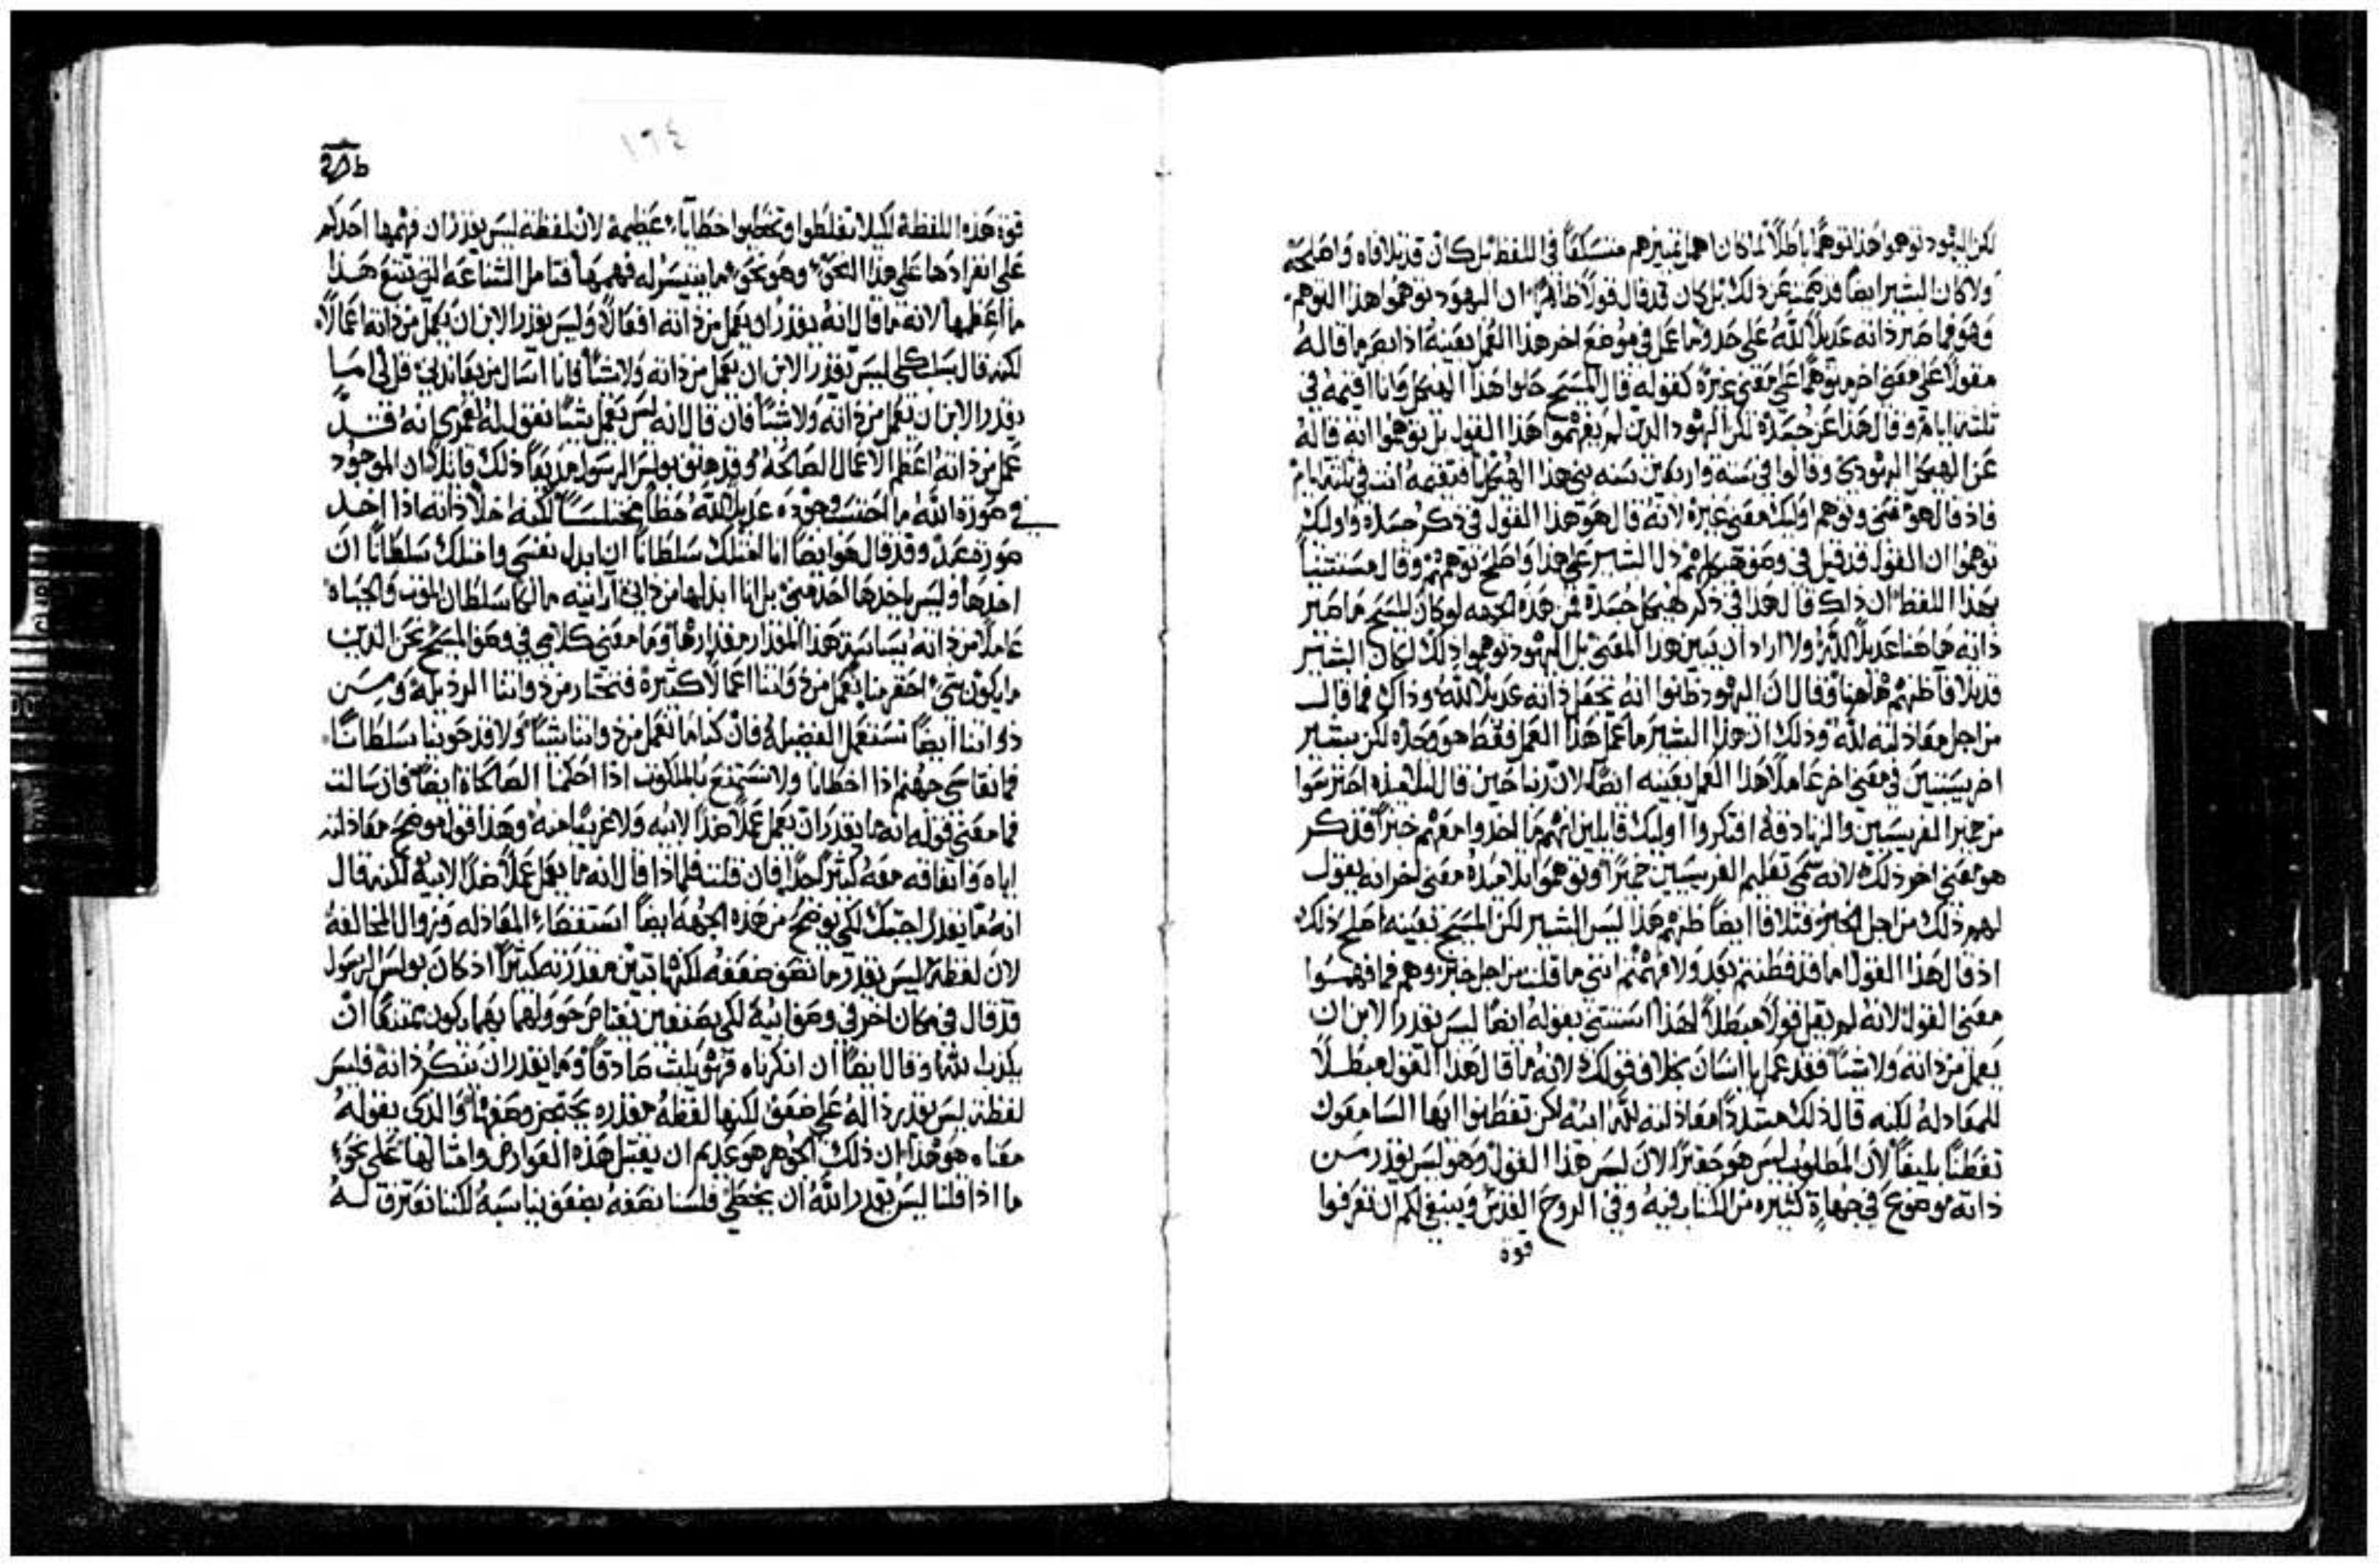 لكن اليهود توهموا هذا توهمًا باطلًا لما كان اهمل تمييزهم منسكفًا في اللفظ بل كان قد تلافاه واصلحه
ولا كان البشير ايضًا قد صمت عن ذلك بل كان قد قال قولًا ظاهرًا ان اليهود توهموا هذا التوهم
وهو فما صير ذاته عديلًا لله على حد وما عمل في موضع اخر هذا العمل بعينه اذا ابصر ما قاله
مقولًا على معنى اخر متوهمًا على معنى غيره كقوله قال المسيح حلوا هذا الهيكل وانا اقيمه في
ثلثه ايام وقال هذا عن جسده لكن اليهود الذين لم يفهموا هذا القول بل توهموا انه قاله
عن الهيكل اليهودي وقالوا في سته واربعين سنه بني هذا الهيكل افتقيمه انت في ثلثه ايام
فاذ قال هو معنى وتوهم اوليك معنى غيره لانه قال هو هذا القول في ذكر جسده واوليك
توهموا ان القول قد قيل في وصف هيكلهم دل البشير على هذا واصلح توهمهم وقال مستثنيًا
بهذا اللفظ ان ذاك قال هذا في ذكر هيكل جسده فمن هذه الجهه لو كان المسيح ما صير
ذاته هاهنا عديلًا لله ولا اراد ان يبين هذا المعنى بل اليهود توهموا ذلك لكان البشير
قد تلافا ظنهم هاهنا وقال ان اليهود ظنوا انه يجعل ذاته عديلًا لله وذاك فما قال
من اجل معادلته لله وذلك ان هذا البشير ما عمل هذا العمل فقط هو وحده لكن بشير
اخر يستبين في معنى اخر عاملًا هذا العمل بعينه ايضًا لان ربنا حين قال لتلاميذه احترسوا
من خمير الفريسيين والزنادقه افتكروا اوليك قايلين انهم ما اخذوا معهم خبزًا فذكر
هو معنى اخر ذلك لانه سمى تعليم الفريسيين خميرًا وتوهموا تلاميذه معنى اخر انه يقول
لهم ذلك من اجل الخبز فتلافا ايضًا ظنهم هذا ليس البشير لكن المسيح بعينه اصلح ذلك
اذ قال هذا القول اما قد فطنتم بعد ولا فهمتم انني ما قلت من اجل خبز وهم فما فهموا
معنى القول لانه لم يقل قولًا مبطلًا لهذا استثنى بقوله ايضًا ليس يقدر الابن ان
يعمل من ذاته ولا شيًا فقد عمل يا انسان بخلاف قولك لانه ما قال هذا القول مبطلًا
للمعادله لكنه قال ذلك مشددًا معادلته لله ابيه لكن تفطنوا ايها السامعون
تفطنًا بليغًا لان المطلوب ليس هو حقيرًا لان ليس هذا القول وهو ليس يقدر من
ذاته موضوع في جهاة كثيره من الكتاب فيه وفي الروح القدس وينبغي لكم ان تعرفوا
قوة
١٦٤
قوة هذه اللفظة لكيلا تغلطوا وتخطوا خطاياءً عظيمة لان لفظة ليس يقدر ان فهمها احدكم
على انفرادها على هذا النحو وهو نحو ما يتيسر له فهمها فتامل الشناعه التي تتبع هذا
ما اعظمها لانه ما قال انه يقدر ان يعمل من ذاته افعالًا وليس يقدر الابن ان يعمل من ذاته اعمالًا
لكنه قال بسلب كلي ليس يقدر الابن ان يعمل من ذاته ولا شيًا فانا اسال من يعاندني قل لي اما
يقدر الابن ان يعمل من ذاته ولا شيًا فان قال انه ليس يعمل شيًا نقول له لعمري انه قد
عمل من ذاته اعظم الاعمال الصالحه وقد هتف بولس الرسول هتفًا ذلك قايلًا ان الموجود
في صورة الله ما احتسب وجوده عديل الله خطًا مختلسًا لكنه اخلا ذاته اذ اخذ
صورة عبد وقد قال هو ايضًا انا امتلك سلطانًا ان ابدل نفسي وامتلك سلطانًا ان
اخذها وليس ياخذها احد مني بل انا ابدلها من ذاتي ارايته مالكًا سلطان الموت والحياه
عاملًا من ذاته سياسة هذا المقدار مقدارها وما معنى كلامي في وصف المسيح نحن الذين
ما يكون شيء احقر منا نعمل من ذواتنا اعمالًا كثيرة فنختار من ذواتنا الرذيله ومن
ذواتنا ايضًا نستعمل الفضيله فان كنا ما نعمل من ذواتنا شيًا ولا قد حوينا سلطانًا
فما نقاسي جهنم اذا اخطانا ولا نستمتع بالملكوت اذا احكمنا الصالحاة ايضًا فان سالت
فما معنى قوله انه ما يقدر ان يعمل عملًا ضدًا لابيه ولا غريبًا منه وهذا قول موضح معادلته
اباه واتفاقه معه كثيرًا جدًا فان قلت فلماذا قال انه ما يعمل عملًا ضدًا لابيه لكنه قال
انه ما يقدر اجبتك لكي يوضح من هذه الجهه ايضًا استقصاء المعادله وزوال المخالفه
لان لفظة ليس يقدر ما تصف ضعفه لكنها تبين مقدرته كثيرًا اذ كان بولس الرسول
قد قال في مكان اخر في وصف ابيه لكي بصنفين يفتاض حوولهما بهما يكون ممتنعًا ان
يكذب الله وقال ايضًا ان انكرناه فهو يلبث صادقًا وما يقدر ان ينكر ذاته فليس
لفظة ليس يقدر دالة على ضعف لكنها لفظه مقدره يعجز وصفها والذي يقوله
معناه هو هذا ان ذلك الجوهر هو عديم ان يقتبل هذه العوارض وامثالها على نحو
ما اذا قلنا ليس يقدر الله ان يخطي فلسنا نصفه بضعف يناسبه لكننا نعترف له